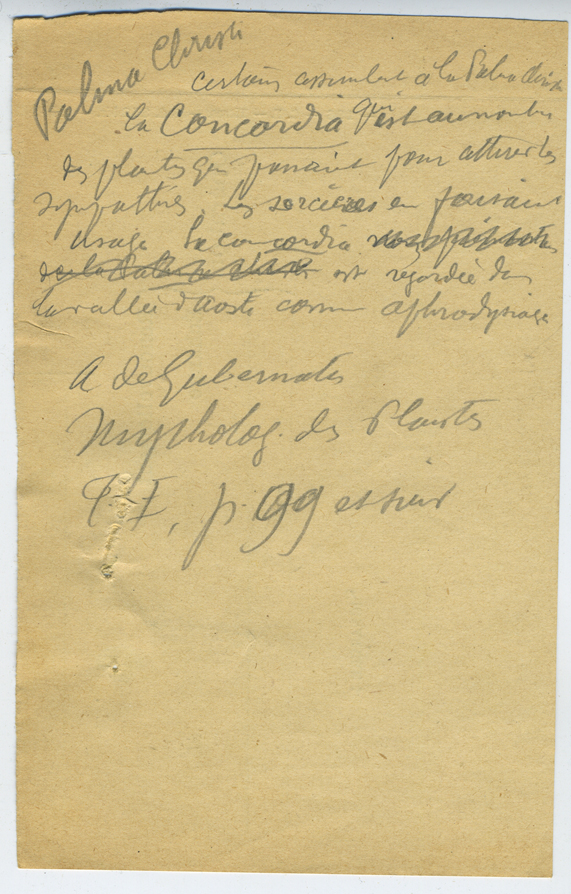 Palma Christi
certains assimilent à la Palma Christi
la Concordia qui est au nombre
des plantes qui passaient pour attirer les
sympathies. Les sorcières en faisaient
usage la concordia
de la Palma Christi est regardée dans
la vallée d'Aoste comme aphrodysiaque
A de Gubernatis
Mytholog. des Plantes
T. I, p. 99 et suiv